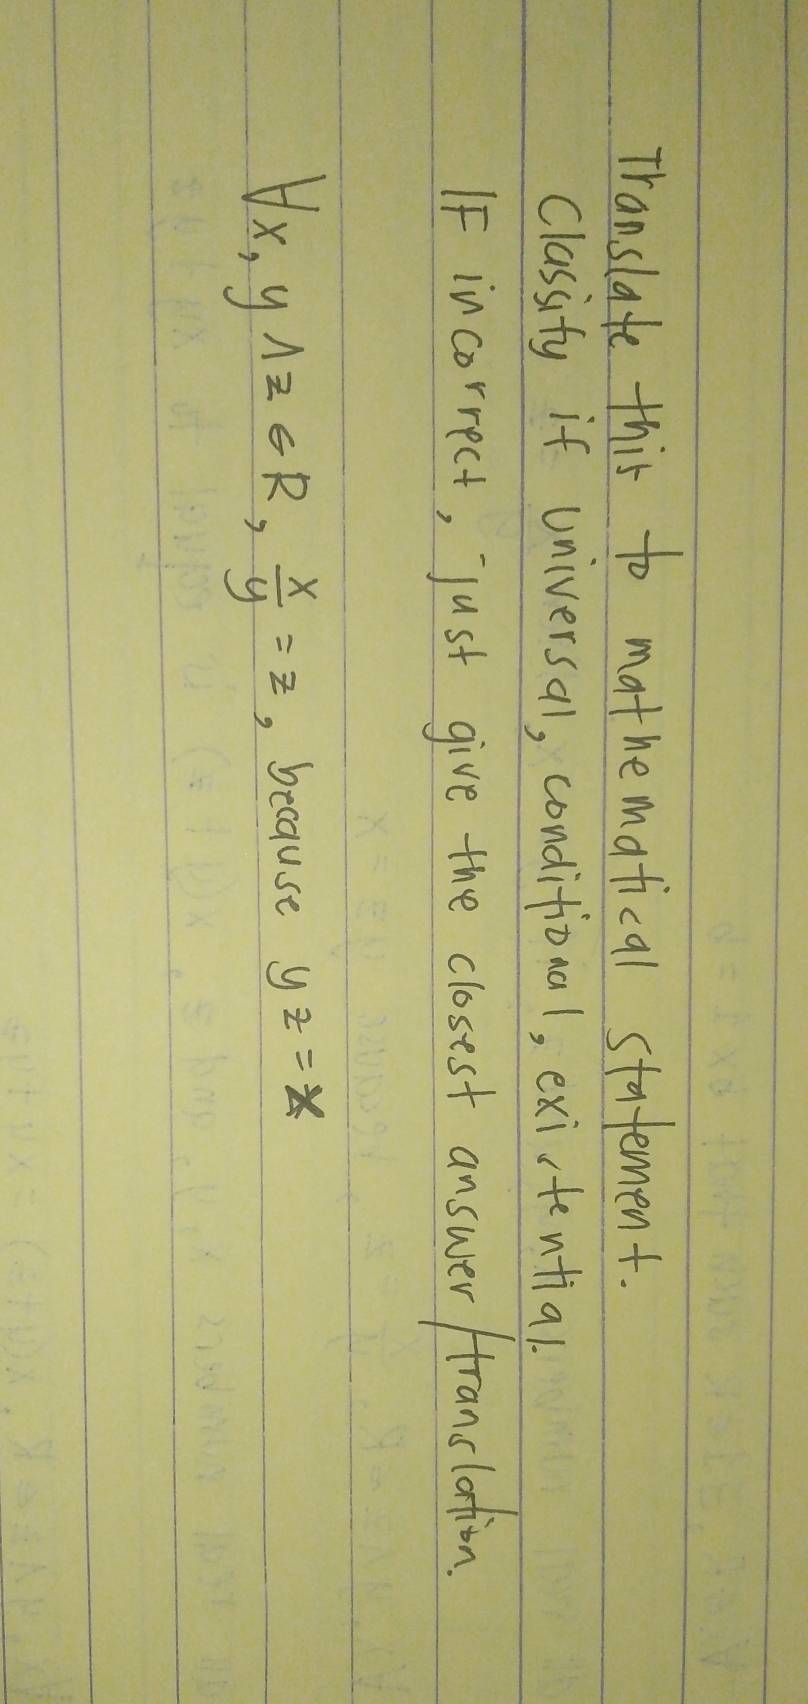 Translate this to mathematical statement.
Classify if universal, conditional, existential.
IF incorrect, just give the closest answer/translation.
∀x, y ∧ z ∈ R, x/y = z, because yz = x